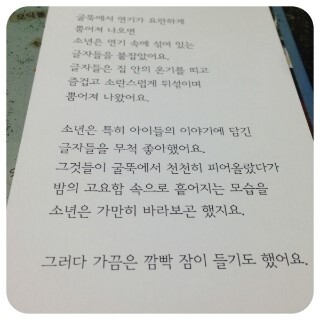 굴뚝에서 연기가 요란하게
뿜어져 나오면
소년은 연기 속에 섞여 있는
글자들을 붙잡았어요.
글자들은 집 안의 온기를 띠고
즐겁고 소란스럽게 뒤섞이며
뿜어져 나왔어요.
소년은 특히 아이들의 이야기에 담긴
글자들을 무척 좋아했어요.
그것들이 굴뚝에서 천천히 피어올랐다가
밤의 고요함 속으로 흩어지는 모습을
소년은 가만히 바라보곤 했지요.
그러다 가끔은 깜빡 잠이 들기도 했어요.